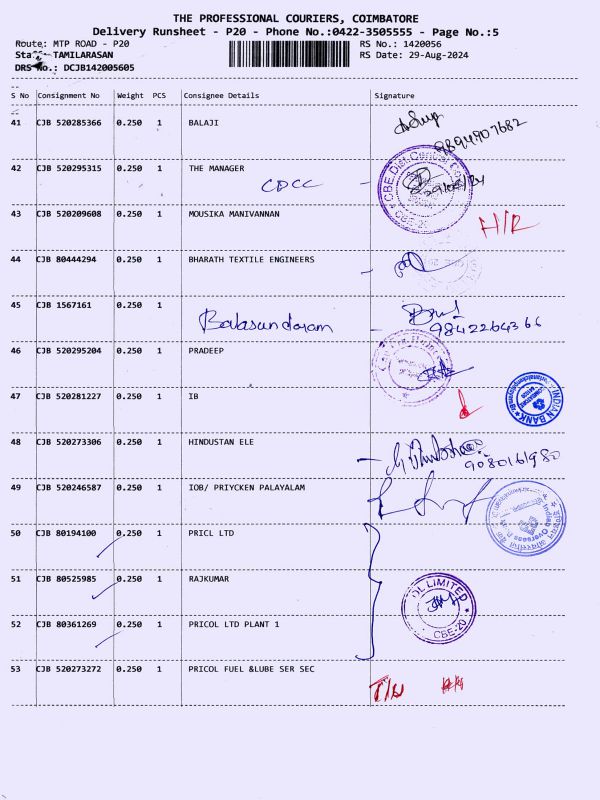 THE PROFESSIONAL COURIERS, COIMBATORE
Delivery Runsheet - P20 - Phone No.:0422-3505555 - Page No.:5
Route: MTP ROAD - P20 RS No.: 1420056
TAMILARASAN RS Date: 29-Aug-2024
DRS No.: DCJB142005605
S No Consignment No Weight PCS Consignee Details Signature
41 CJB 520285366 0.250 1 BALAJI
9894907682
42 CJB 520295315 0.250 1 THE MANAGER
CDCC
CBE.Dist.Central
CBE-20
43 CJB 520209608 0.250 1 MOUSIKA MANIVANNAN
44 CJB 80444294 0.250 1 BHARATH TEXTILE ENGINEERS
45 CJB 1567161 0.250 1
Balasundaram 9842264366
46 CJB 520295204 0.250 1 PRADEEP
47 CJB 520281227 0.250 1 IB
INDIAN BANK
48 CJB 520273306 0.250 1 HINDUSTAN ELE
9080161980
49 CJB 520246587 0.250 1 IOB/ PRIYCKEN PALAYALAM
Indian Overseas
50 CJB 80194100 0.250 1 PRICL LTD
51 CJB 80525985 0.250 1 RAJKUMAR
OL LIMITED
CBE-20
52 CJB 80361269 0.250 1 PRICOL LTD PLANT 1
53 CJB 520273272 0.250 1 PRICOL FUEL &LUBE SER SEC